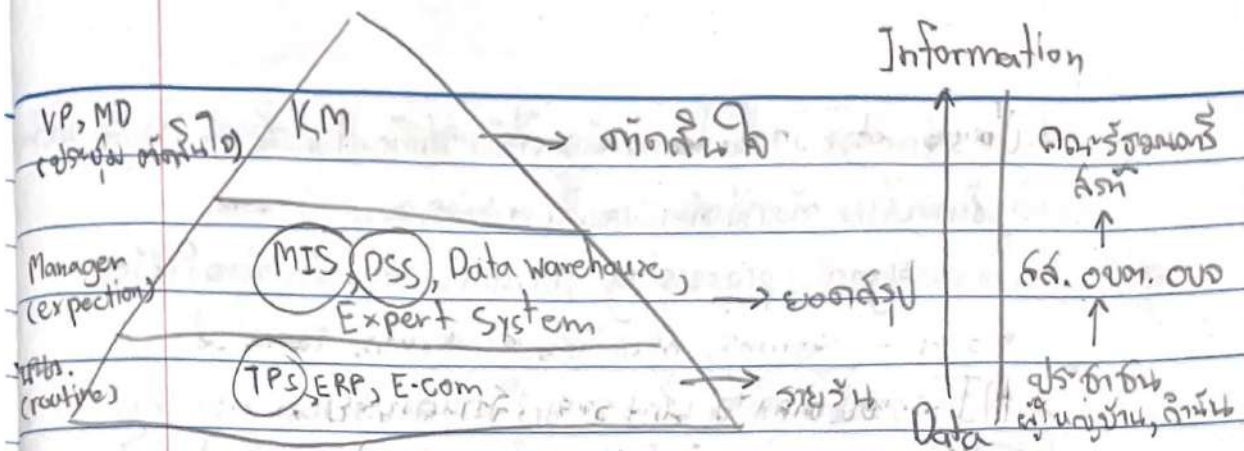 Information
VP, MD
(ประชุม ตัดสินใจ)
KM
→ ตัดสินใจ
คณะรัฐมนตรี
Manager
(expection)
MIS, DSS, Data warehouse,
Expert System
→ ยอดสรุป
สส. อบต. อบจ
(routine)
TPS, ERP, E-com
→ รายวัน
ประชาชน
ผู้ใหญ่บ้าน, กำนัน
Data